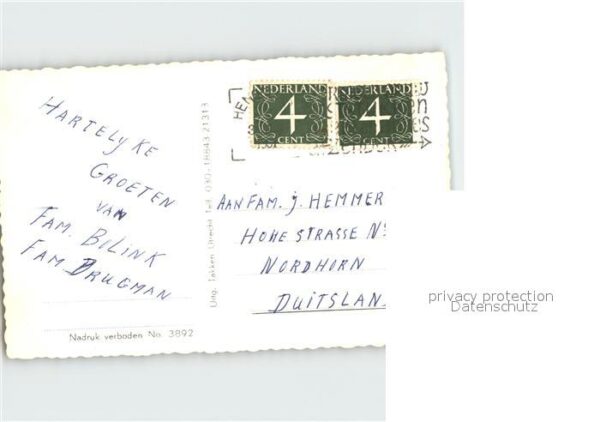 HARTELYKE
GROETEN
VAN
FAM. BOLINK
FAM. BRUGMAN
Uitg. Takken Utrecht Tel. 030-18843-21313
Nadruk verboden No. 3892
NEDERLAND
4
CENT
NEDERLAND
4
CENT
AAN FAM. J. HEMMER
HOHE STRASSE No
NORDHORN
DUITSLAN
privacy protection
Datenschutz